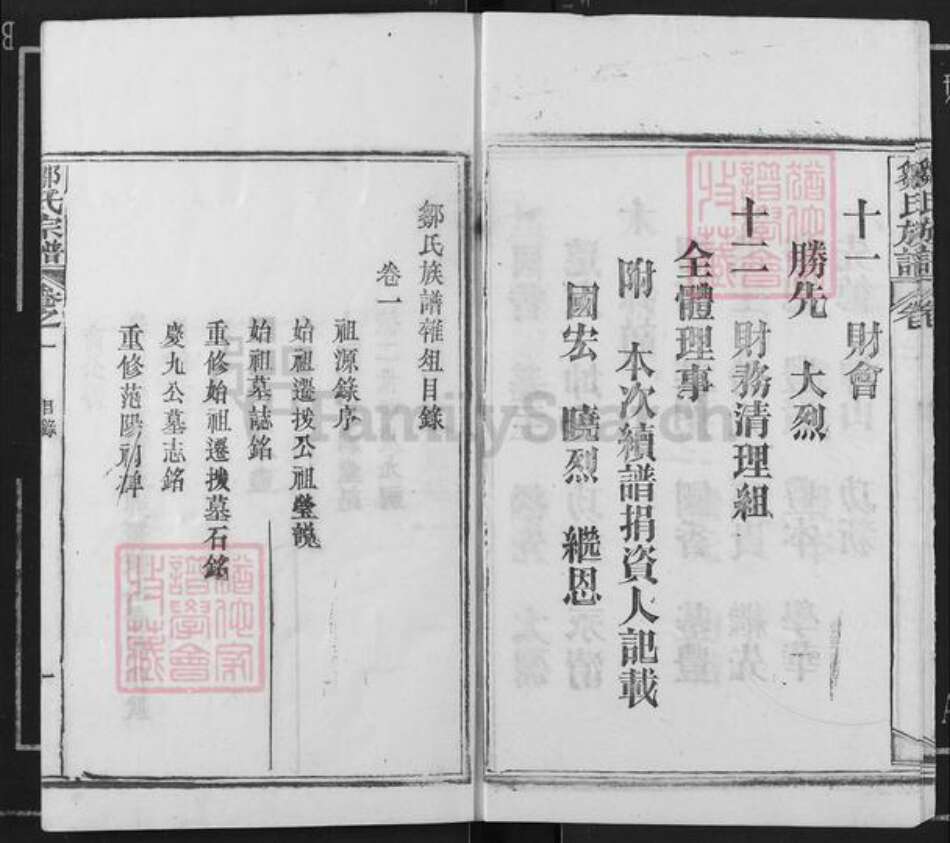 鄒氏族譜
卷
十一 財會
勝先 大烈
十二 財務清理組
全體理事
附 本次續譜捐資人記載
國宏 曉烈 繼恩
鄒氏族譜雜俎目錄
卷一
祖源錄序
始祖遷拨公祖塋說
始祖墓誌銘
重修始祖遷拨墓石銘
慶九公墓志銘
重修范陽祠碑
鄒氏宗譜
卷之一
目錄
一
FamilySearch